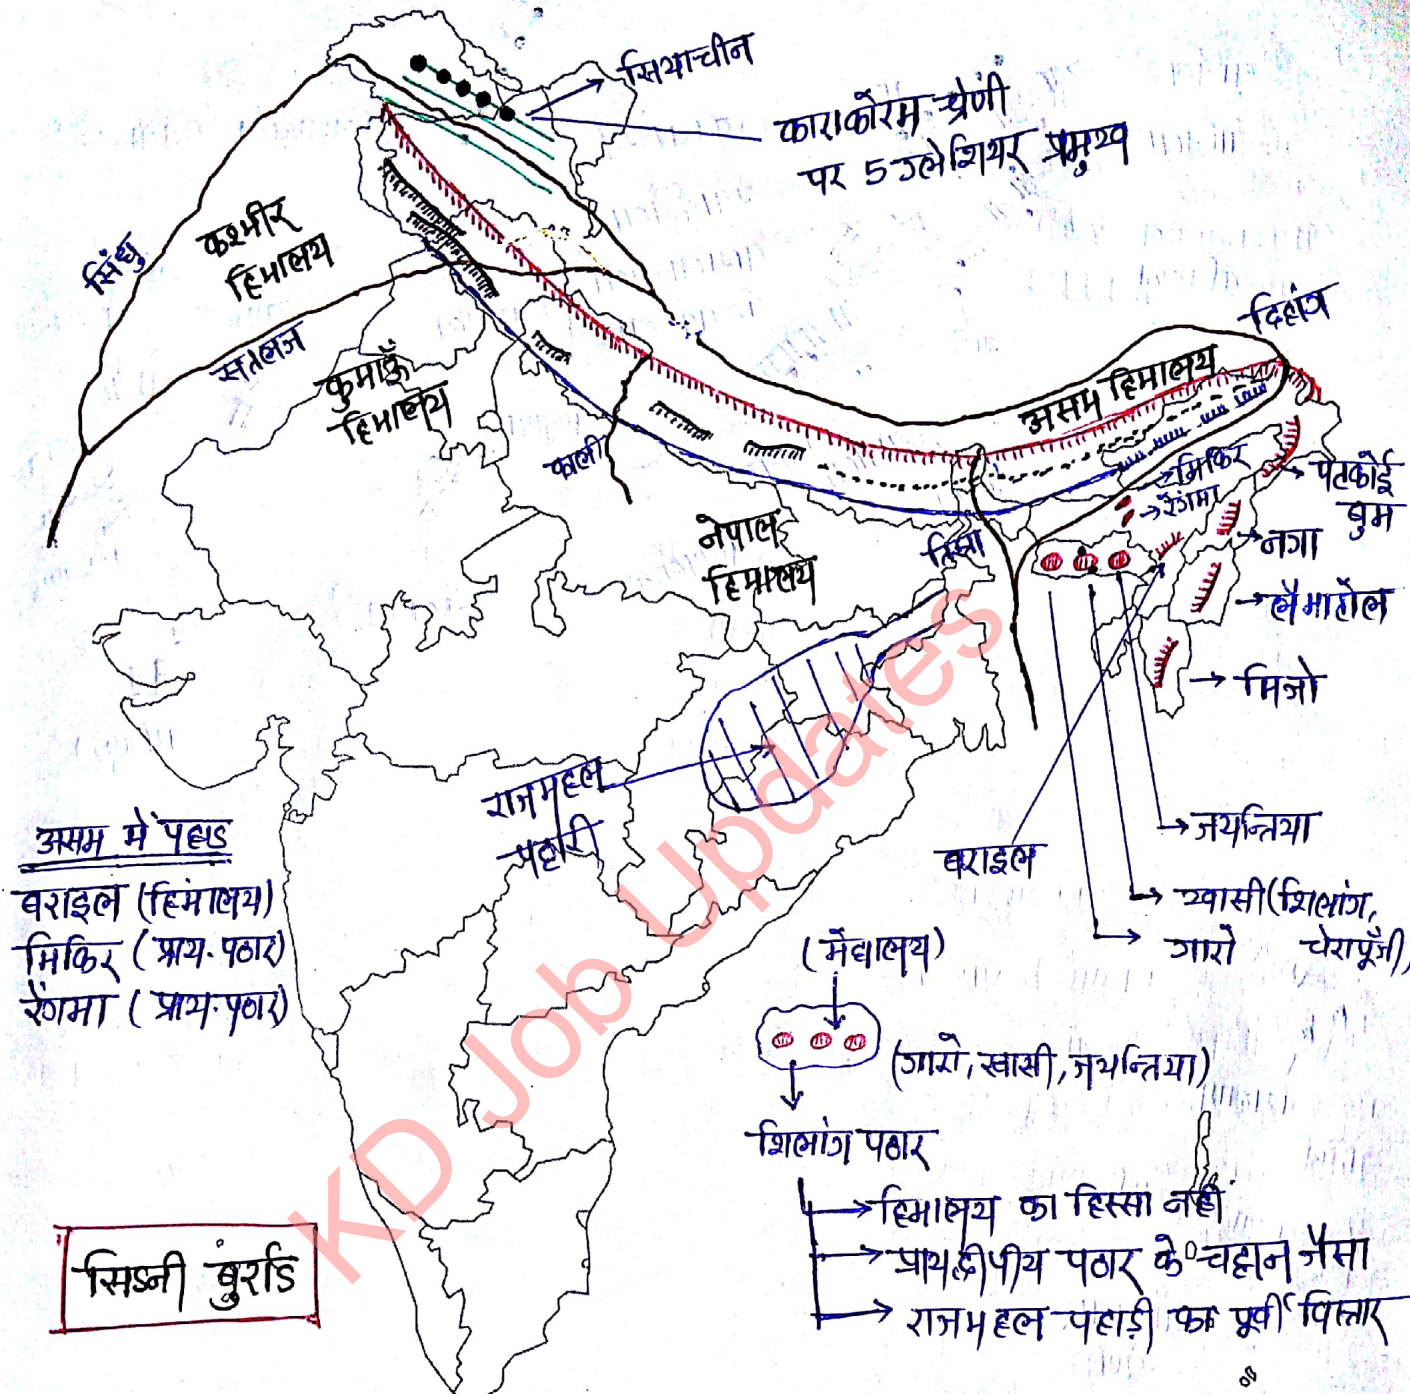 सियाचीन
काराकोरम श्रेणी
पर 5 ग्लेशियर प्रमुख
सिंधु
कश्मीर
हिमालय
सतलज
कुमाऊँ
हिमालय
काली
नेपाल
हिमालय
तिस्ता
असम हिमालय
दिहांग
मिकिर
रेंगमा
पटकोई
बुम
नगा
लैमाटोल
मिजो
जयन्तिया
खासी (शिलांग,
चेरापूँजी)
गारो
बराइल
राजमहल
पहाड़ी
असम में पहाड
बराइल (हिमालय)
मिकिर (प्राय. पठार)
रेंगमा (प्राय. पठार)
(मेघालय)
(गारो, खासी, जयन्तिया)
शिलांग पठार
हिमालय का हिस्सा नहीं
प्रायद्वीपीय पठार के चट्टान जैसा
राजमहल पहाड़ी का पूर्वी विस्तार
सिडनी बुर्राड
KD Job Updates